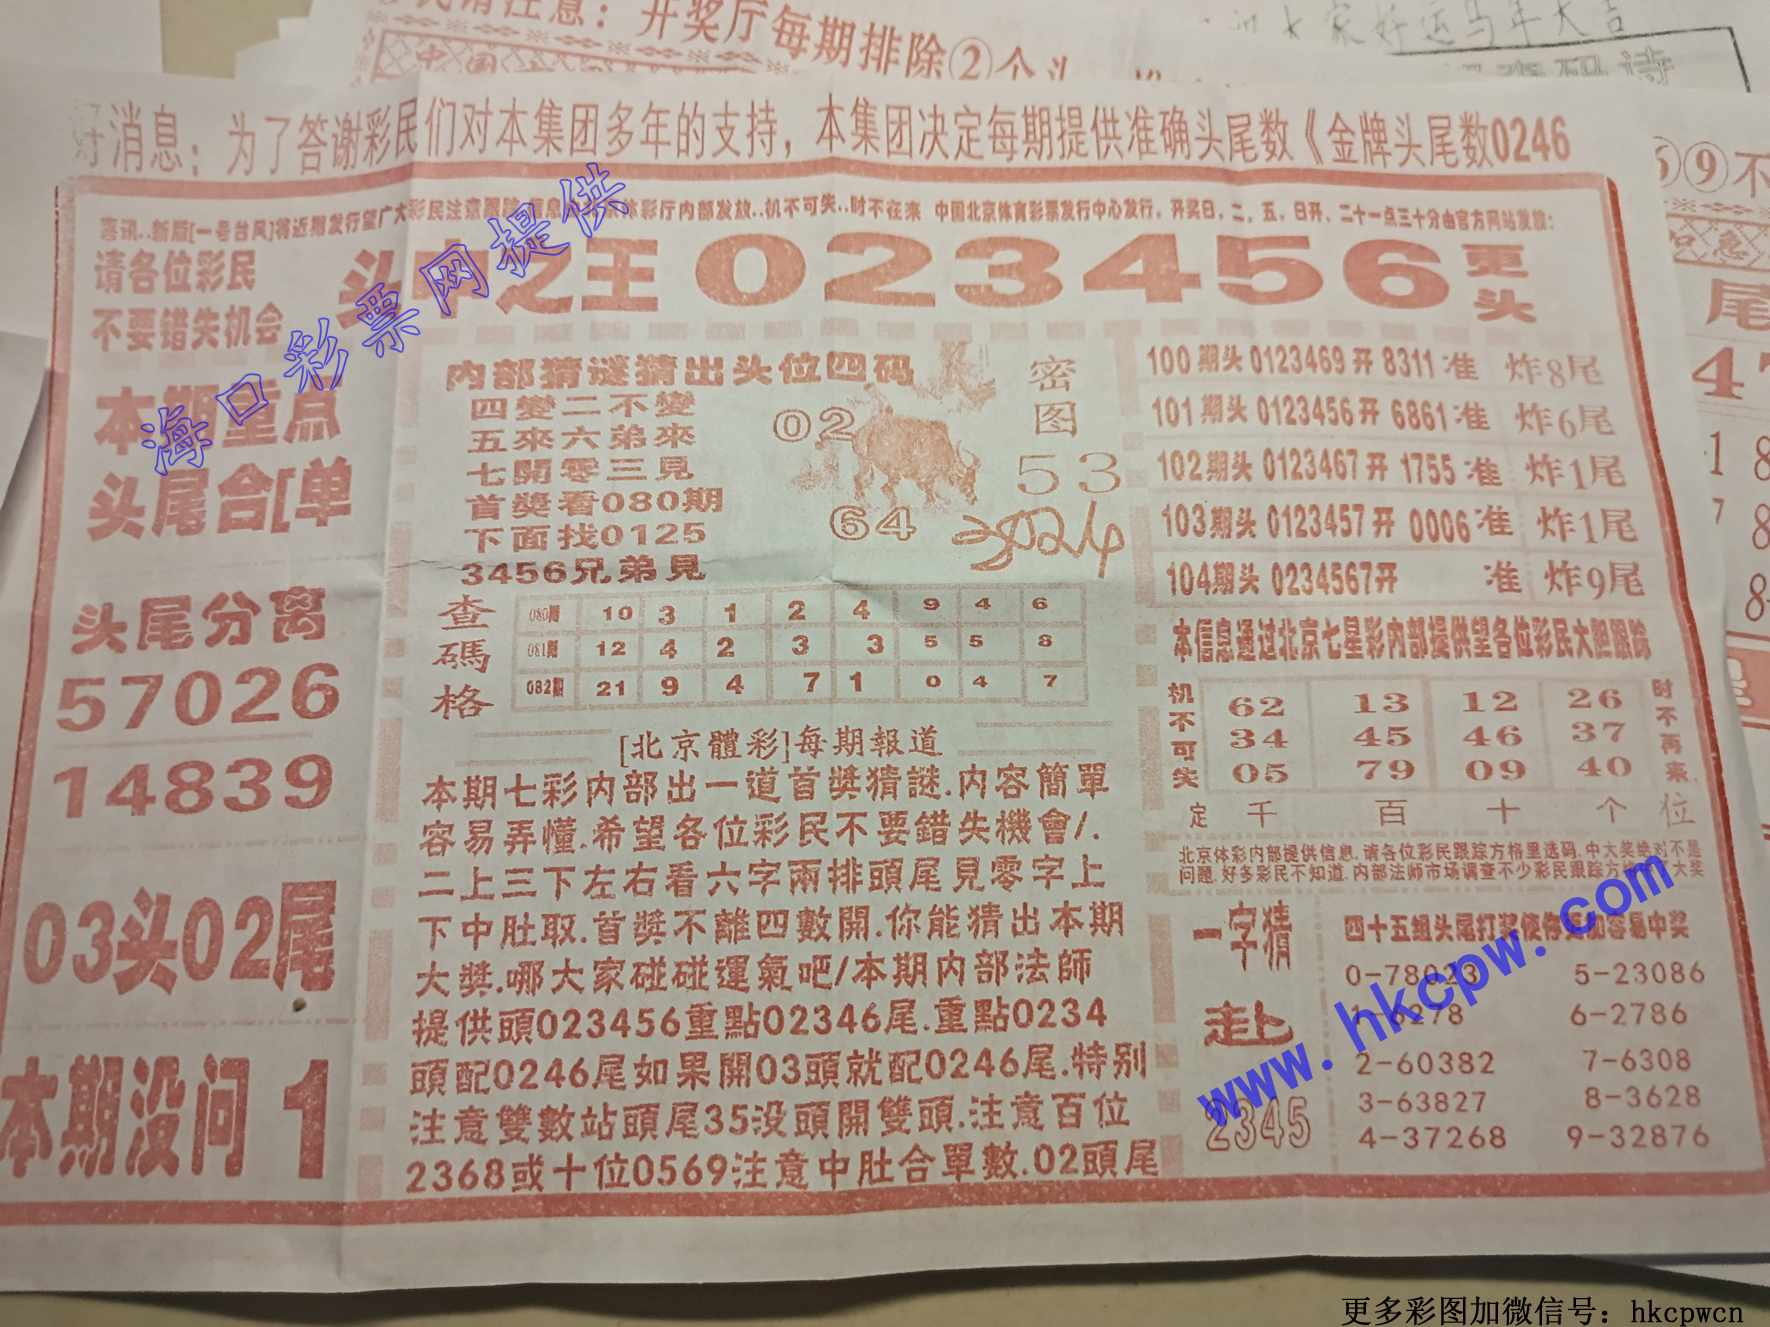 民请注意：开奖厅每期排除②个头
大家好运马年大吉
好消息：为了答谢彩民们对本集团多年的支持，本集团决定每期提供准确头尾数《金牌头尾数0246
喜讯..新版[一号台风]将近期发行望广大彩民注意跟踪
彩厅内部发放..机不可失..时不在来 中国北京体育彩票发行中心发行，开奖日，二，五，日开、二十一点三十分由官方网站发放：
请各位彩民
不要错失机会
头中之王023456更头
本期重点
头尾合[单
头尾分离
57026
14839
03头02尾
本期没问1
内部猜谜猜出头位四码
四變二不變
五來六弟來
七開零三見
首獎看080期
下面找0125
3456兄弟見
密图
02
53
64
查碼格
080期 10 3 1 2 4 9 4 6
081期 12 4 2 3 3 5 5 8
082期 21 9 4 7 1 0 4 7
[北京體彩]每期報道
本期七彩内部出一道首獎猜謎.内容簡單
容易弄懂.希望各位彩民不要錯失機會/.
二上三下左右看六字兩排頭尾見零字上
下中肚取.首獎不離四數開.你能猜出本期
大獎.哪大家碰碰運氣吧/本期内部法師
提供頭023456重點02346尾.重點0234
頭配0246尾如果開03頭就配0246尾.特别
注意雙數站頭尾35没頭開雙頭.注意百位
2368或十位0569注意中肚合單數.02頭尾
100期头0123469开8311准 炸8尾
101期头0123456开6861准 炸6尾
102期头0123467开1755准 炸1尾
103期头0123457开0006准 炸1尾
104期头0234567开 准 炸9尾
本信息通过北京七星彩内部提供望各位彩民大胆跟踪
机不可失
62 13 12 26
34 45 46 37
05 79 09 40
时不再来
定 千 百 十 个 位
北京体彩内部提供信息.请各位彩民跟踪方格里选码.中大奖绝对不是
问题.好多彩民不知道.内部法师市场调查不少彩民跟踪方格 大奖
一字猜
赴
2345
四十五组头尾打奖使你更加容易中奖
0-78023 5-23086
6278 6-2786
2-60382 7-6308
3-63827 8-3628
4-37268 9-32876
海口彩票网提供
www.hkcpw.com
更多彩图加微信号：hkcpwcn